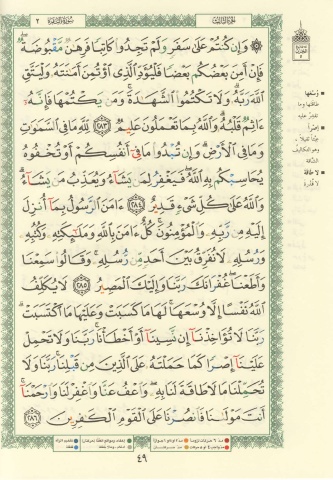 الجزء الثالث
سورة البقرة ٢
۞ وَإِن كُنتُمْ عَلَىٰ سَفَرٍ وَلَمْ تَجِدُوا۟ كَاتِبًا فَرِهَٰنٌ مَّقْبُوضَةٌ ۖ
فَإِنْ أَمِنَ بَعْضُكُم بَعْضًا فَلْيُؤَدِّ ٱلَّذِى ٱؤْتُمِنَ أَمَٰنَتَهُۥ وَلْيَتَّقِ
ٱللَّهَ رَبَّهُۥ ۗ وَلَا تَكْتُمُوا۟ ٱلشَّهَٰدَةَ ۚ وَمَن يَكْتُمْهَا فَإِنَّهُۥٓ
ءَاثِمٌ قَلْبُهُۥ ۗ وَٱللَّهُ بِمَا تَعْمَلُونَ عَلِيمٌ ﴿٢٨٣﴾ لِّلَّهِ مَا فِى ٱلسَّمَٰوَٰتِ
وَمَا فِى ٱلْأَرْضِ ۗ وَإِن تُبْدُوا۟ مَا فِىٓ أَنفُسِكُمْ أَوْ تُخْفُوهُ
يُحَاسِبْكُم بِهِ ٱللَّهُ ۖ فَيَغْفِرُ لِمَن يَشَآءُ وَيُعَذِّبُ مَن يَشَآءُ ۗ
وَٱللَّهُ عَلَىٰ كُلِّ شَىْءٍ قَدِيرٌ ﴿٢٨٤﴾ ءَامَنَ ٱلرَّسُولُ بِمَآ أُنزِلَ
إِلَيْهِ مِن رَّبِّهِۦ وَٱلْمُؤْمِنُونَ ۚ كُلٌّ ءَامَنَ بِٱللَّهِ وَمَلَٰٓئِكَتِهِۦ وَكُتُبِهِۦ
وَرُسُلِهِۦ لَا نُفَرِّقُ بَيْنَ أَحَدٍ مِّن رُّسُلِهِۦ ۚ وَقَالُوا۟ سَمِعْنَا
وَأَطَعْنَا ۖ غُفْرَانَكَ رَبَّنَا وَإِلَيْكَ ٱلْمَصِيرُ ﴿٢٨٥﴾ لَا يُكَلِّفُ
ٱللَّهُ نَفْسًا إِلَّا وُسْعَهَا ۚ لَهَا مَا كَسَبَتْ وَعَلَيْهَا مَا ٱكْتَسَبَتْ ۗ
رَبَّنَا لَا تُؤَاخِذْنَآ إِن نَّسِينَآ أَوْ أَخْطَأْنَا ۚ رَبَّنَا وَلَا تَحْمِلْ
عَلَيْنَآ إِصْرًا كَمَا حَمَلْتَهُۥ عَلَى ٱلَّذِينَ مِن قَبْلِنَا ۚ رَبَّنَا وَلَا
تُحَمِّلْنَا مَا لَا طَاقَةَ لَنَا بِهِۦ ۖ وَٱعْفُ عَنَّا وَٱغْفِرْ لَنَا وَٱرْحَمْنَآ ۚ
أَنتَ مَوْلَىٰنَا فَٱنصُرْنَا عَلَى ٱلْقَوْمِ ٱلْكَٰفِرِينَ ﴿٢٨٦﴾
وُسْعَها
طاقتها وما
تقدر عليه
إصْراً
عبئاً ثقيلاً
وهو التكاليف
لا طاقة
لا قدرة
٤٩